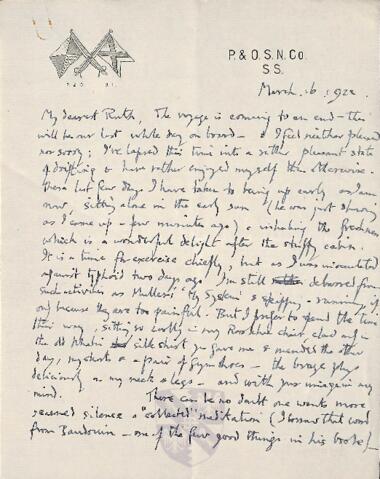 P. & O. S. N. Co.
S.S.
March 16 1922
My dearest Ruth, The voyage is coming to an end - this
will be our last whole day on board - & I feel neither pleased
nor sorry; I've lapsed this time into a rather pleasant state
of drifting & have rather enjoyed myself than otherwise.
These last few days I have taken to being up early as I am
now, sitting alone in the early sun (he was just showing
as I came up a few minutes ago) & inhaling the freshness
which is a wonderful delight after the stuffy cabin.
It is a time for exercise chiefly, but as I was inoculated
against typhoid two days ago I'm still debarred from
such activities as Muller's System & skipping & running, if
only because they are too painful. But I prefer to spend the time
this way, sitting so coolly in my chair, clad only in
the old silk shirt you gave me & mended the other
day, my shorts & a pair of gym shoes - the breeze plays
deliciously on my neck & legs - and with you in my
mind. There can be no doubt one wants more
secured silence & "collected" meditation (I borrow that word
from Baudouin - one of the few good things in his book) -